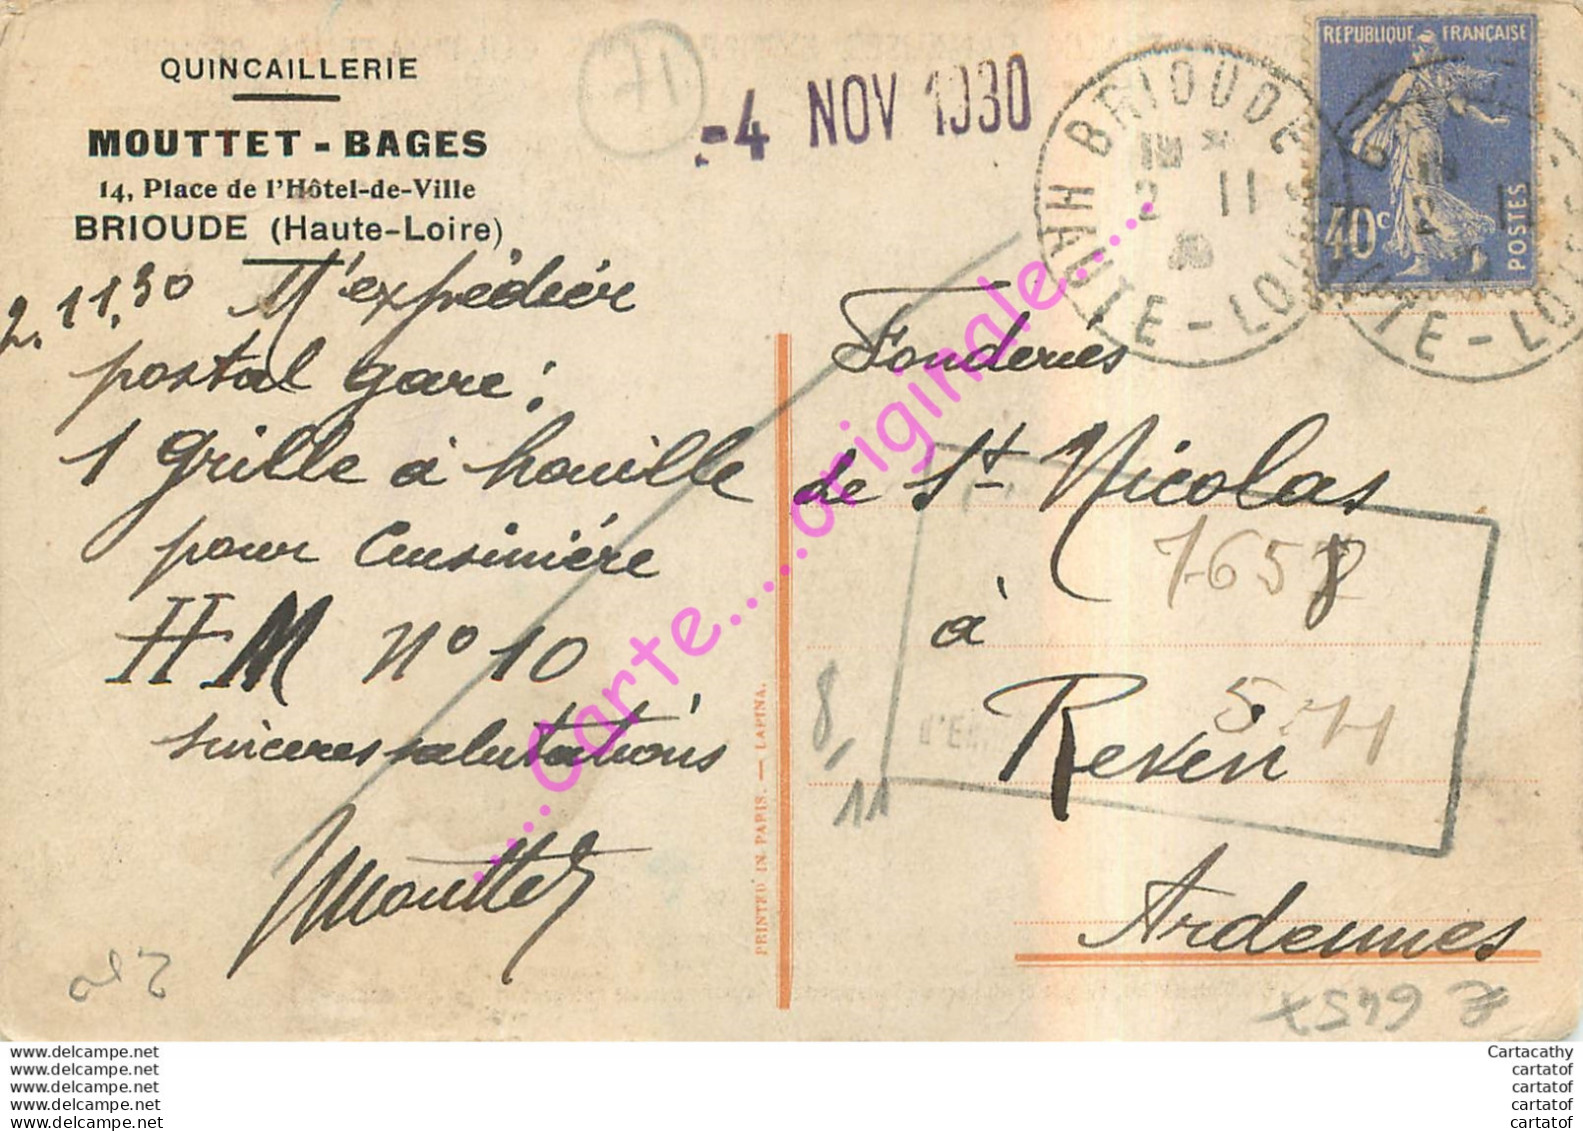 QUINCAILLERIE
MOUTTET - BAGES
14, Place de l'Hôtel-de-Ville
BRIOUDE (Haute-Loire)
2.11.30 M'expédier
postal gare :
1 grille à houille
pour Cuisinière
HM N° 10
sincères salutations
Mouttet
17
-4 NOV 1930
BRIOUDE
2 11
HAUTE-LOIRE
REPUBLIQUE FRANÇAISE
40c
POSTES
Fonderies
de St Nicolas
à
Reven
Ardennes
7658
8,
11
d'E
PRINTED IN PARIS. — LAPINA.
....Carte.....originale......
www.delcampe.net
www.delcampe.net
www.delcampe.net
www.delcampe.net
www.delcampe.net
Cartacathy
cartatof
cartatof
cartatof
cartatof